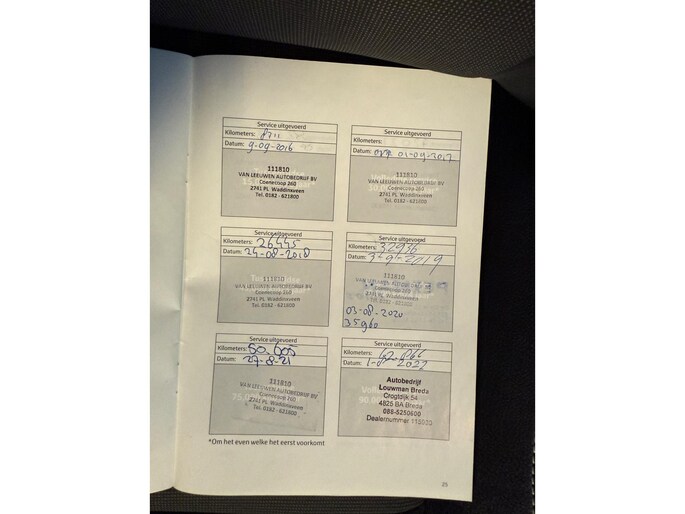 Service uitgevoerd
Kilometers:
Datum: 9-09-2016
111810
VAN LEEUWEN AUTOBEDRIJF BV
Coenecoop 260
2741 PL Waddinxveen
Tel. 0182 - 621800
Service uitgevoerd
Kilometers:
Datum: 01-09-2017
111810
VAN LEEUWEN AUTOBEDRIJF BV
Coenecoop 260
2741 PL Waddinxveen
Tel. 0182 - 621800
Service uitgevoerd
Kilometers: 26445
Datum: 24-08-2018
111810
VAN LEEUWEN AUTOBEDRIJF BV
Coenecoop 260
2741 PL Waddinxveen
Tel. 0182 - 621800
Service uitgevoerd
Kilometers: 32936
Datum: 3-9-2019
111810
VAN LEEUWEN AUTOBEDRIJF BV
Coenecoop 260
2741 PL Waddinxveen
Tel. 0182 - 621800
03-08-2020
35960
Service uitgevoerd
Kilometers: 50.605
Datum: 27-8-21
111810
VAN LEEUWEN AUTOBEDRIJF BV
Coenecoop 260
2741 PL Waddinxveen
Tel. 0182 - 621800
Service uitgevoerd
Kilometers:
Datum: 2022
Autobedrijf
Louwman Breda
Crogtdijk 54
4825 BA Breda
088-5250600
Dealernummer
*Om het even welke het eerst voorkomt
25